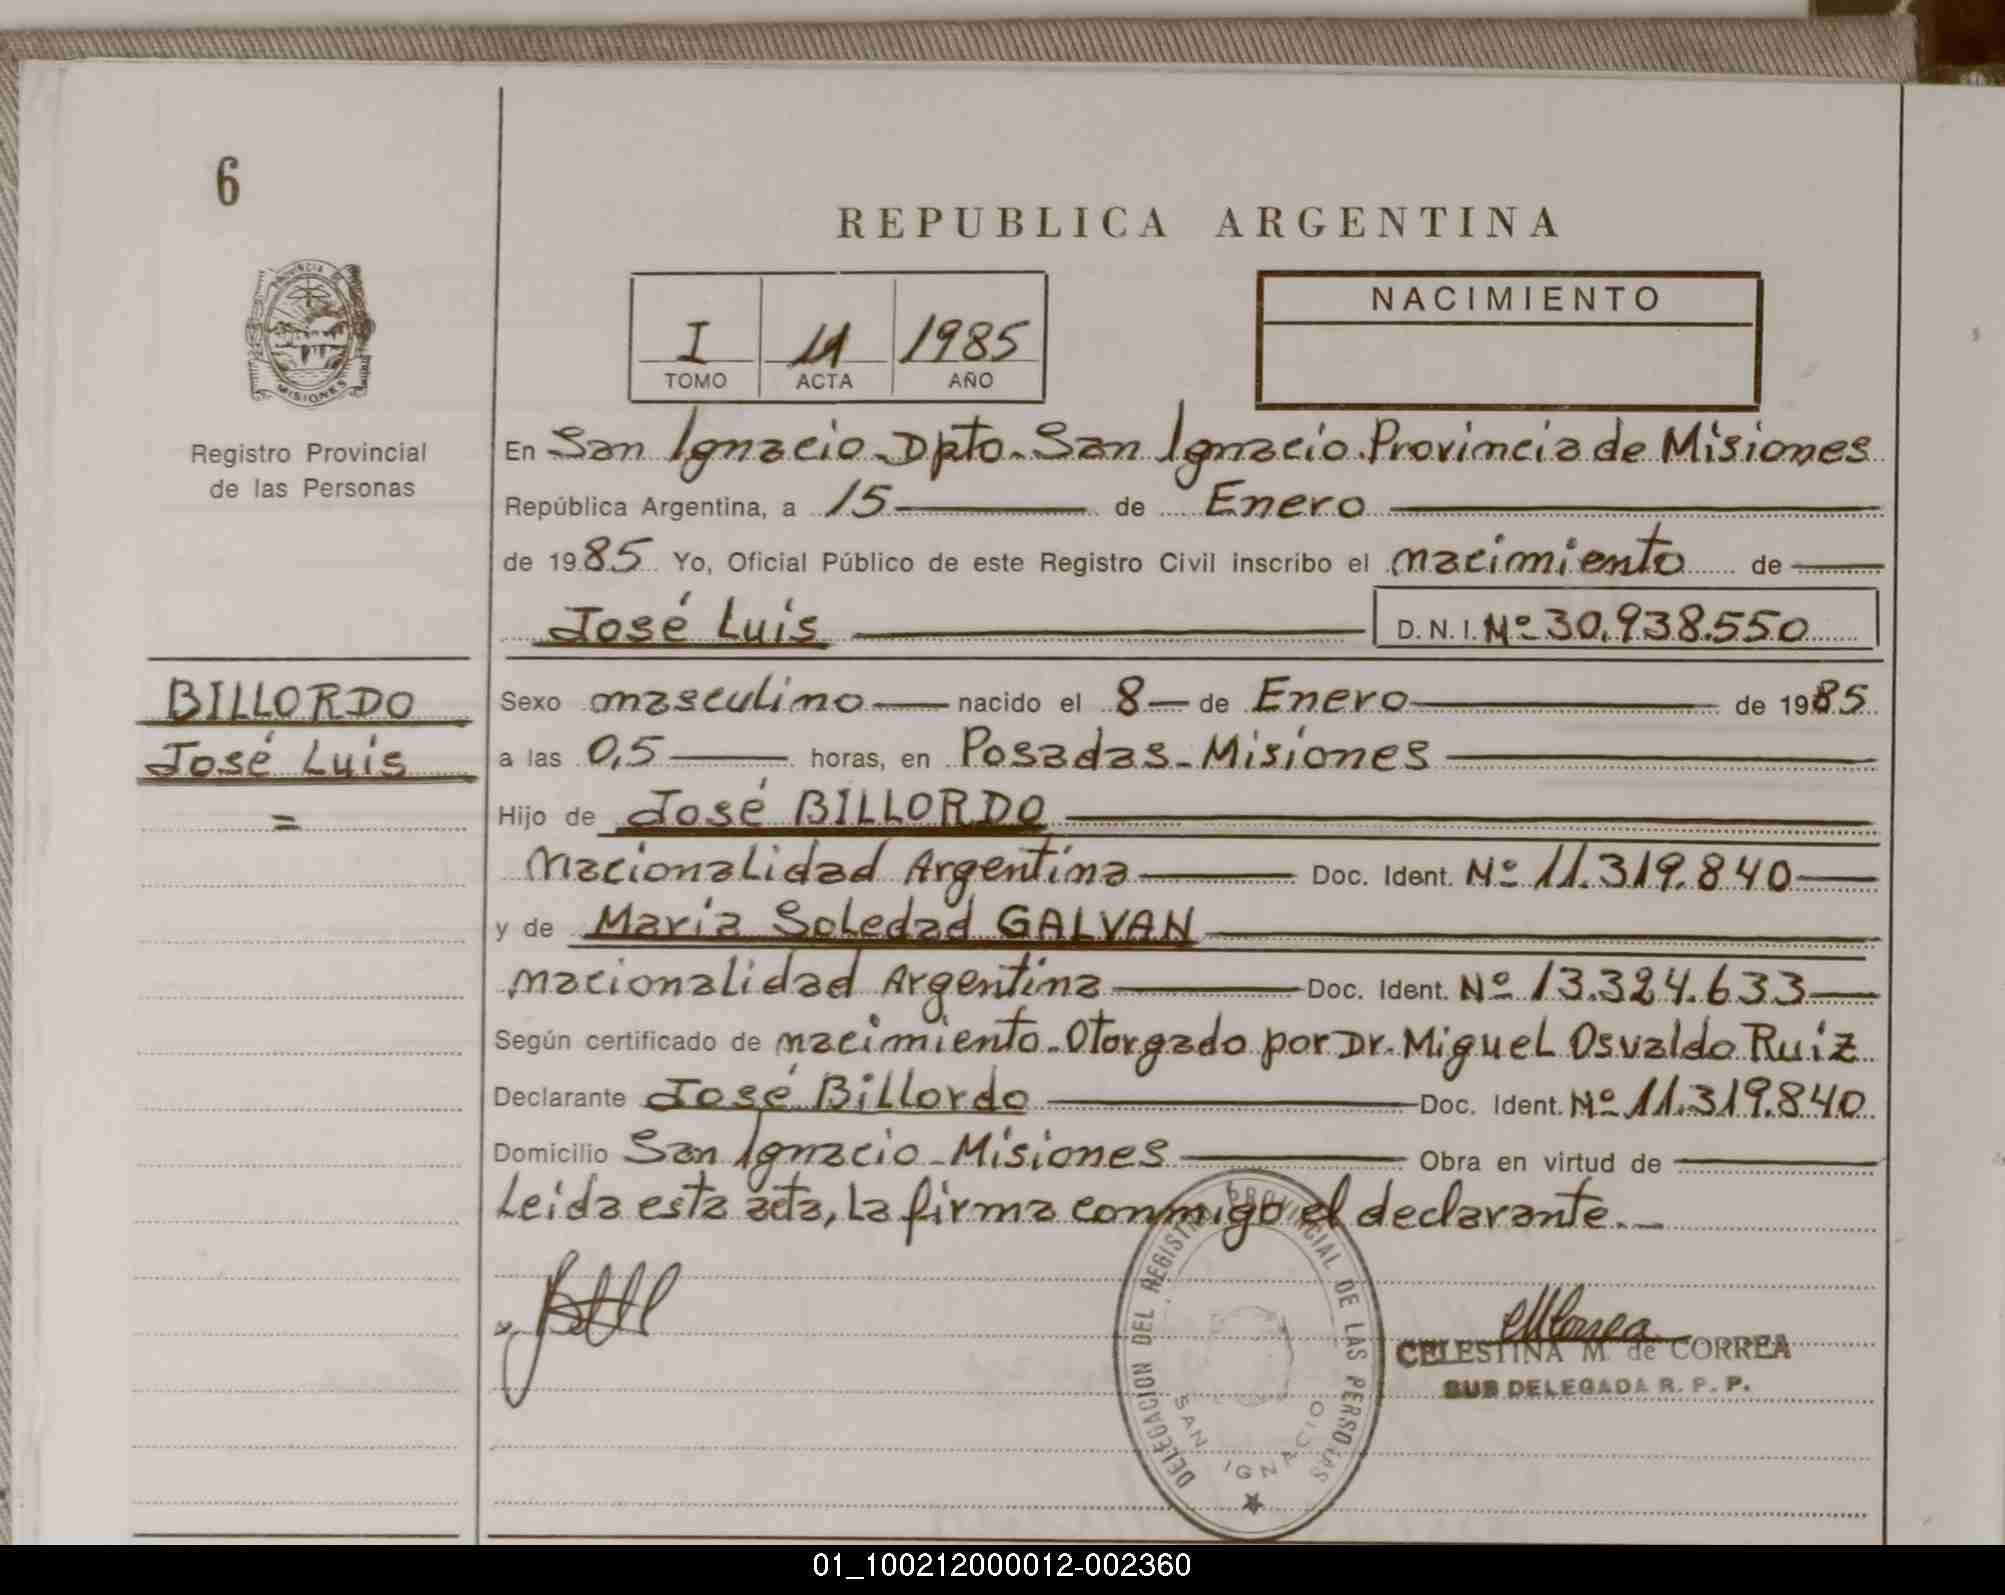 6
REPUBLICA ARGENTINA
PROVINCIA DE
MISIONES
Registro Provincial
de las Personas
NACIMIENTO
I 11 1985
TOMO ACTA AÑO
En San Ignacio-Dpto.San Ignacio.Provincia de Misiones
República Argentina, a 15 de Enero
de 1985 Yo, Oficial Público de este Registro Civil inscribo el nacimiento de
José Luis D. N. I. Nº 30.938.550
BILLORDO
José Luis
=
Sexo masculino nacido el 8 de Enero de 1985
a las 0,5 horas, en Posadas-Misiones
Hijo de José BILLORDO
Nacionalidad Argentina Doc. Ident. Nº 11.319.840
y de María Soledad GALVAN
Nacionalidad Argentina Doc. Ident. Nº 13.324.633
Según certificado de nacimiento-Otorgado por Dr. Miguel Osvaldo Ruiz
Declarante José Billordo Doc. Ident. Nº 11.319.840
Domicilio San Ignacio-Misiones Obra en virtud de
Leida esta acta, la firma conmigo el declarante.-
DELEGACION DEL REGISTRO PROVINCIAL DE LAS PERSONAS
SAN IGNACIO
CELESTINA M. de CORREA
SUB DELEGADA R. P. P.
01_100212000012-002360